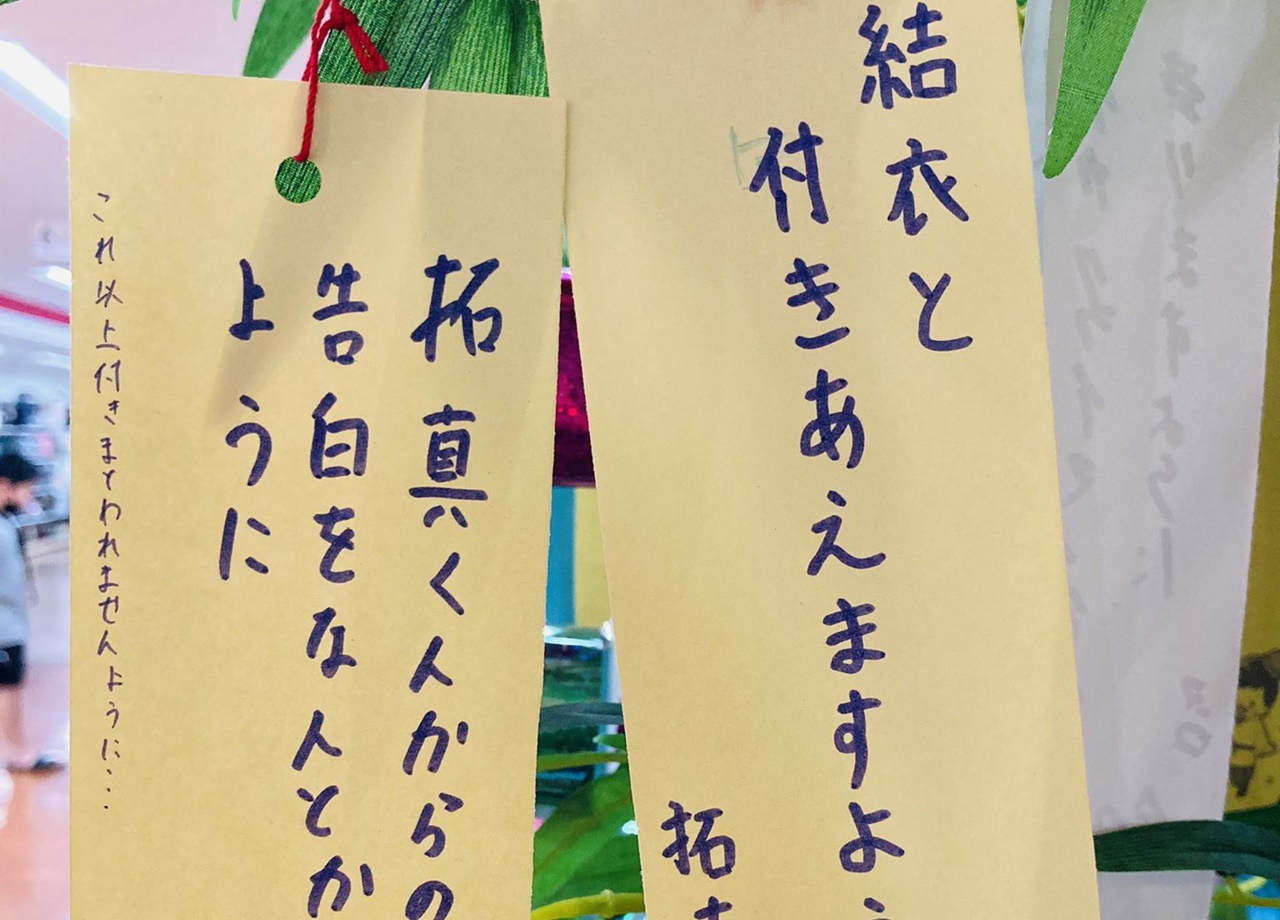 結衣と
付きあえますよ
拓
拓真くんからの
告白をなんとか
ように
これ以上付きまとわれませんように...